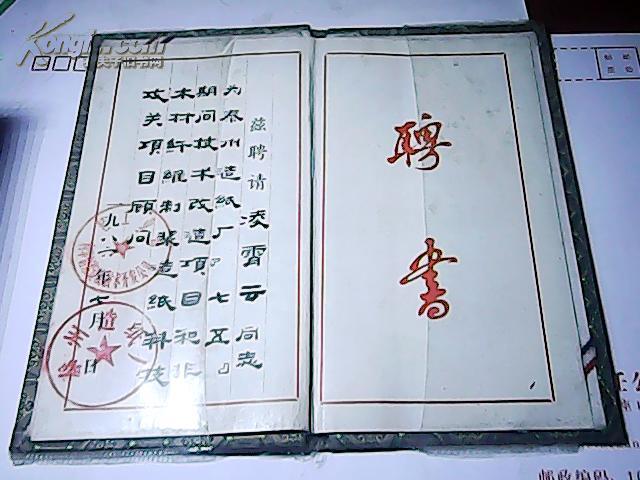 聘書
兹聘请凌霄云同志
为泰州造纸厂『七五』
期间技术改造项目和非
木材纤维制浆造纸科技
攻关项目顾问
一九八六年七月 日
孔夫子旧书网
任公
邮政编码：1